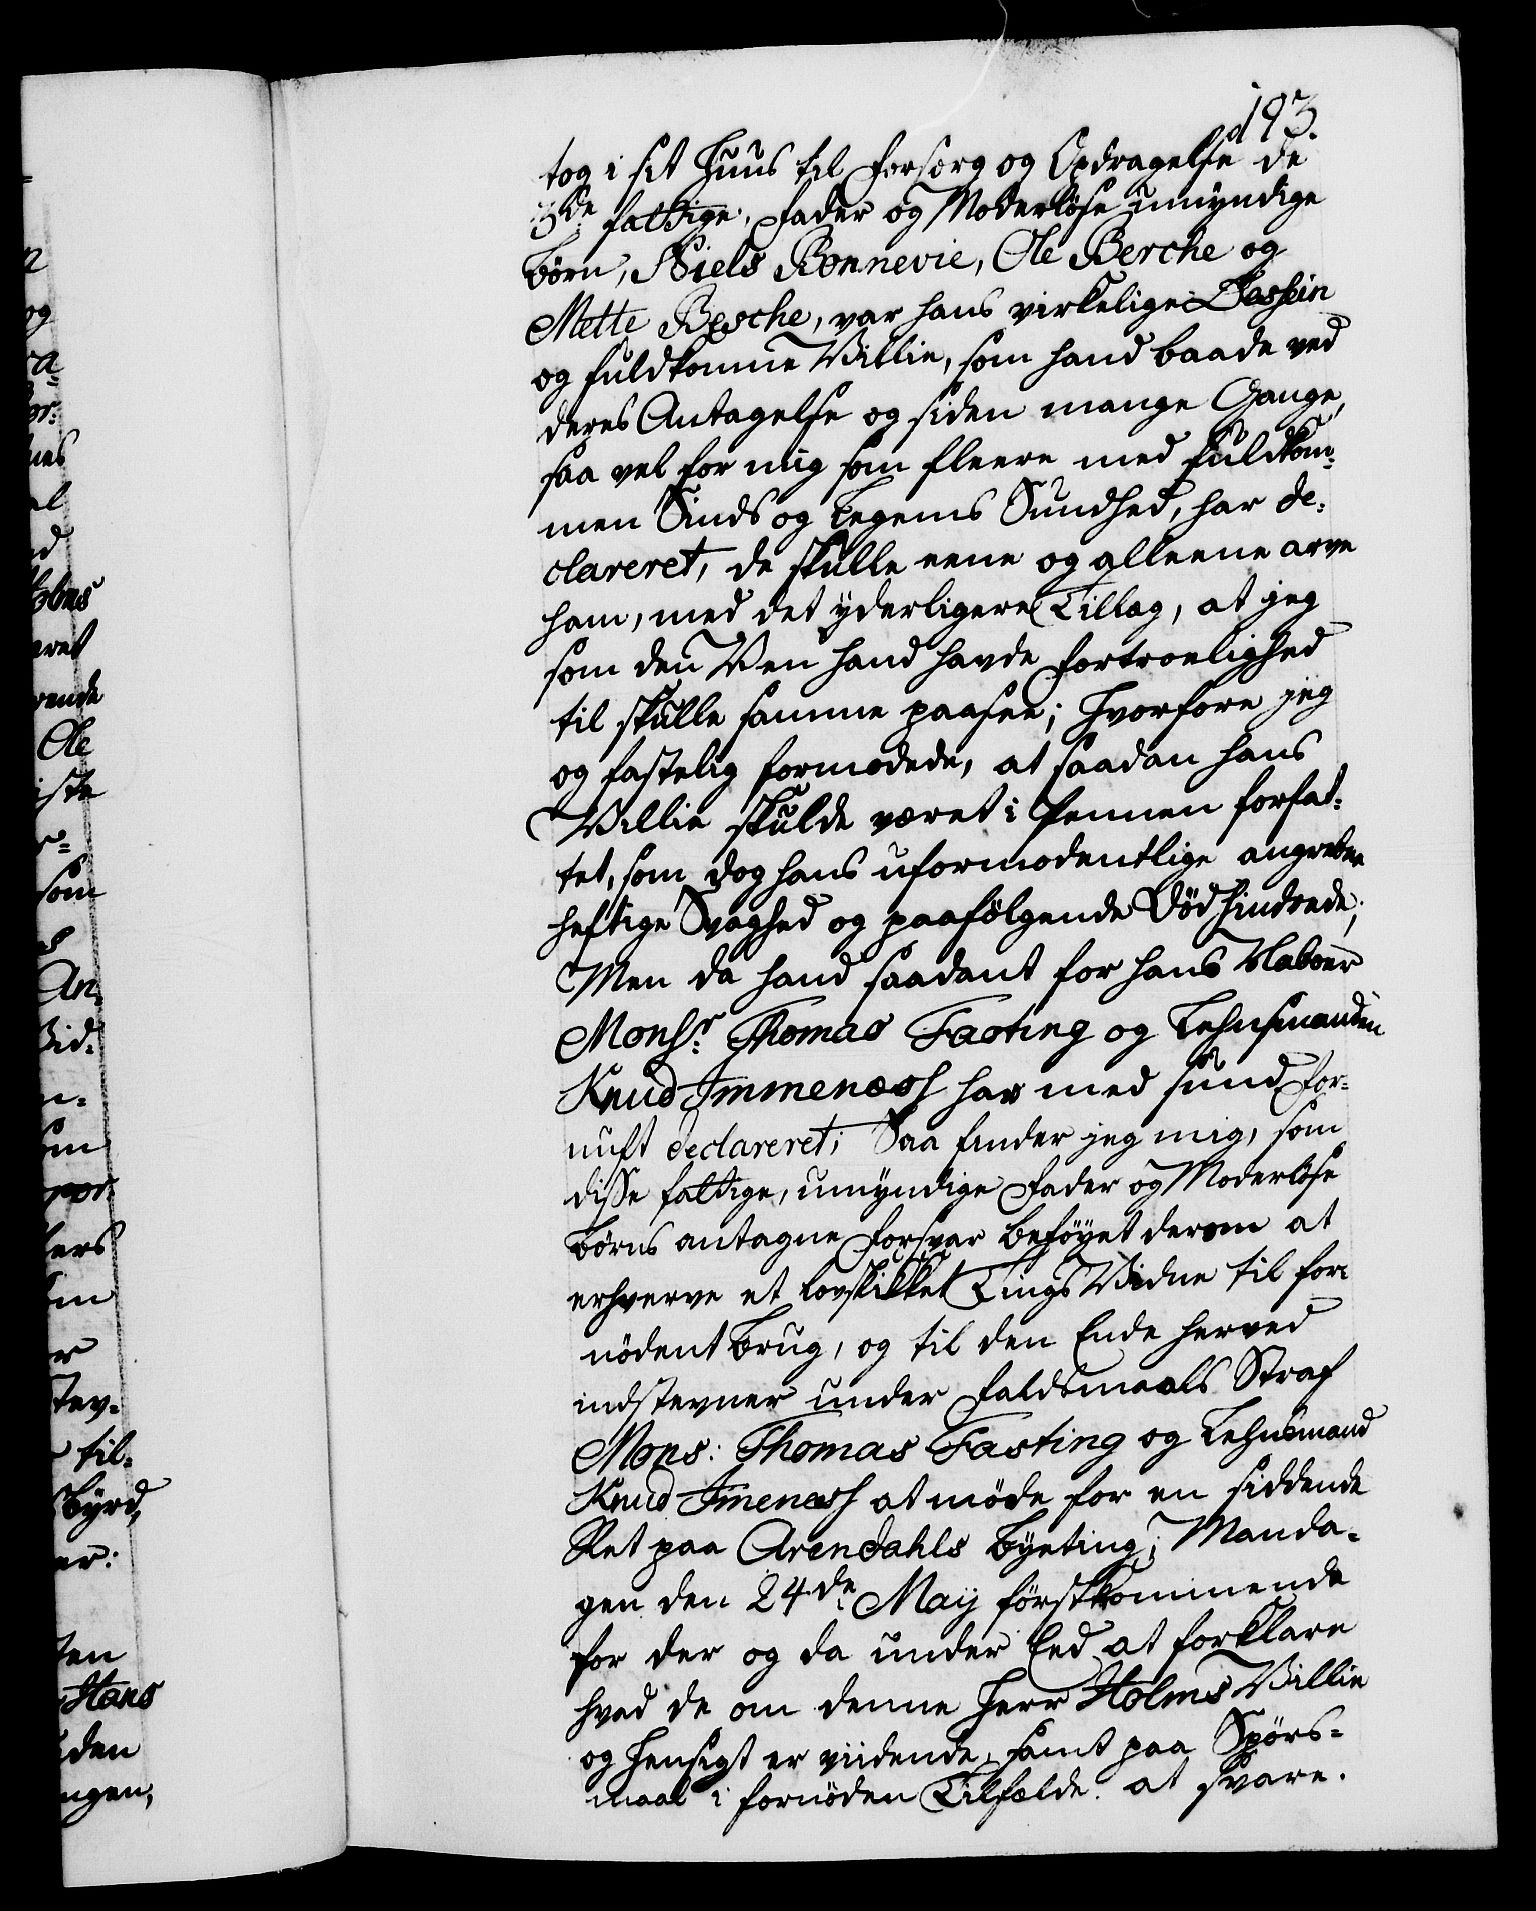 193.
tog i sit Huus til Forsorg og Opdragelse de
3de fattige, Fader og Moderløse umyndige
Børn, Niels Bonnevie, Ole Berche og
Mette Berche, var hans virkelige Dessein
og fuldkomne Villie, som hand baade ved
deres Antagelse og siden mange Gange,
saa vel for mig som fleere med fuldkom-
men Sinds og Legems Sundhed, har de-
clareret, de skulle eene og alleene arve
ham, med det yderligere Tillæg, at jeg
som den Ven hand havde Fortroelighed
til skulle samme paasee; Hvorfore jeg
og fastelig formodede, at saadan hans
Villie skulde været i Pennen forfat-
tet, som dog hans uformodentlige angrebne
heftige Svaghed og paafølgende Død hindrede;
Men da hand saadant for hans Naboer
Monsr Thomas Fasting og Lehnsmanden
Knud Immenæss har med sund For-
nuft declareret; Saa finder jeg mig, som
disse fattige, umyndige Fader og Moderløse
Børns antagne Forsvar beføyet derom at
erhverve et lovskikket Tings Vidne til for-
nødent Brug, og til den Ende herved
indstevner under Faldsmaals Straf
Mons: Thomas Fasting og Lehnsmand
Knud Imenæss at møde for en siddende
Ret paa Arendahls Byeting, Manda-
gen den 24de May førstkommende
for der og da under Eed at forklare
hvad de om denne Herr Holms Villie
og Hensigt er viidende, samt paa Spørs-
maal i fornøden Tilfælde at svare.